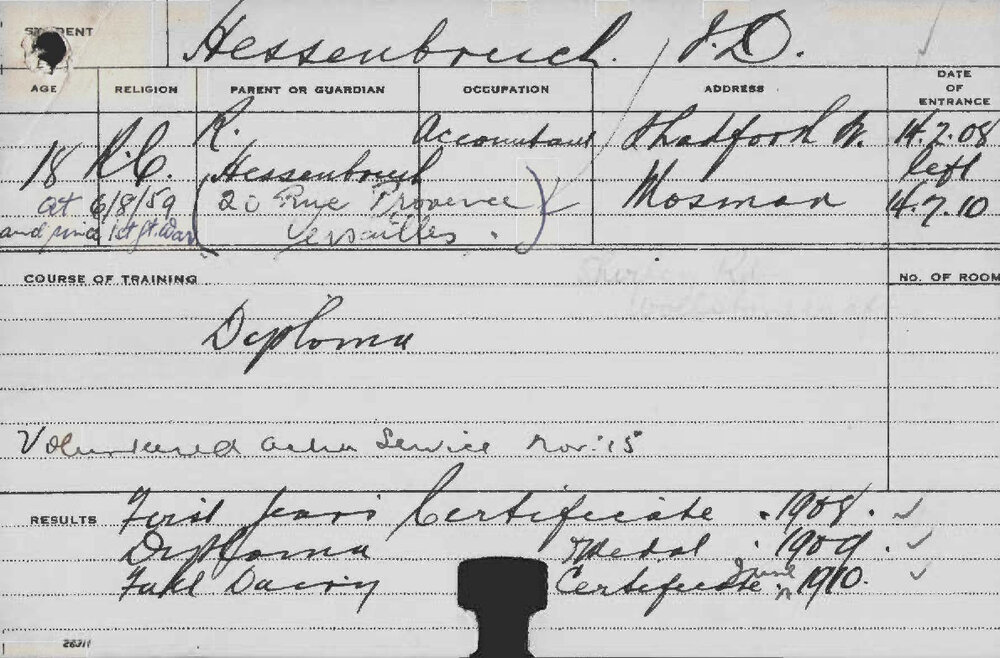 STUDENT Hessenbruch. J. D.
AGE RELIGION PARENT OR GUARDIAN OCCUPATION ADDRESS DATE OF ENTRANCE
18 R.C. R. Hessenbruch Accountant Shadforth St. Mosman 14.7.08
left 14.7.10
at 6/8/59 (20 Rue Provence
and since 1st Gt. War Versailles.)
COURSE OF TRAINING No. OF ROOM
Diploma
Volunteered Active Service Nov: '15
RESULTS First Years Certificate . 1908.
Diploma Medal . 1909.
Full Dairy Certificate June 1910.
26311